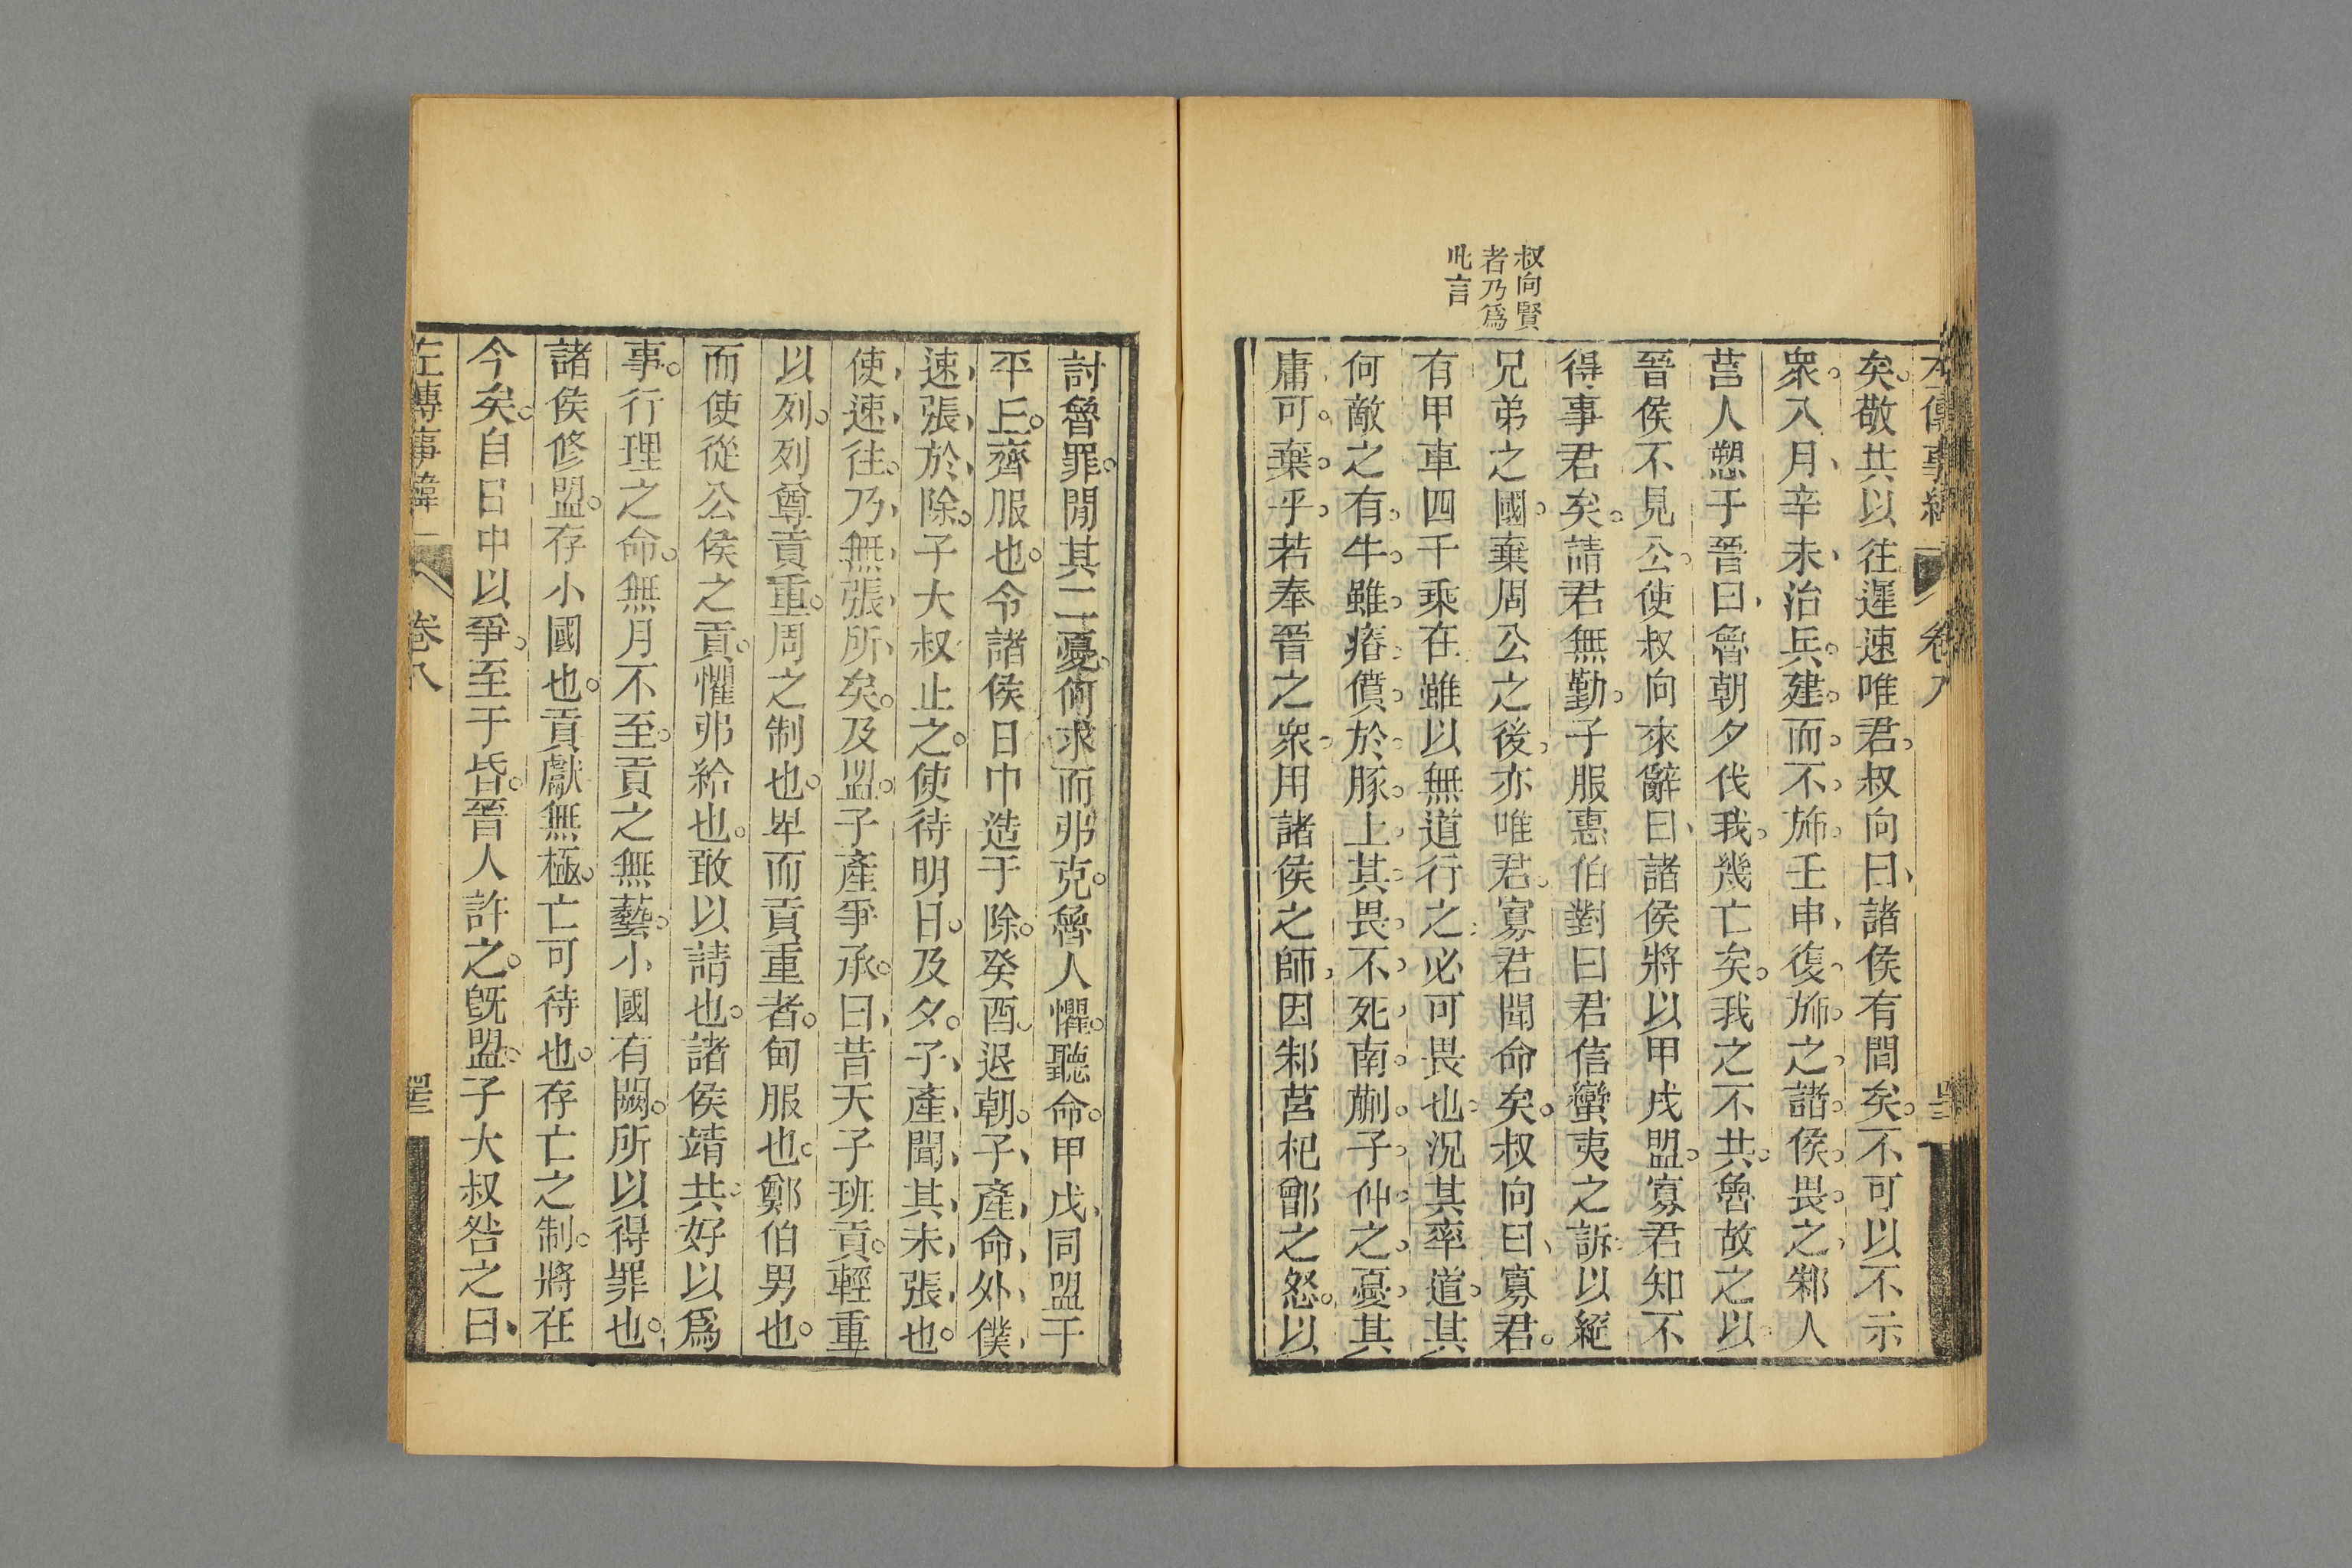 左傳事緯 卷八
矣。敬共以往遲速唯君。叔向曰、諸侯有間矣。不可以不示
衆。八月、辛未、治兵。建而不斾。壬申、復斾之。諸侯畏之、邾人
莒人愬于晉曰、魯朝夕伐我。幾亡矣。我之不共。魯故之以。
晉侯不見公。使叔向來辭曰、諸侯將以甲戌盟。寡君知不
得事君矣。請君無勤。子服惠伯對曰君信蠻夷之訴。以絕
兄弟之國。棄周公之後。亦唯君。寡君聞命矣。叔向曰、寡君。
有甲車四千乘在。雖以無道行之。必可畏也。況其率道。其
何敵之有。牛雖瘠。僨於豚上。其畏不死。南蒯子仲之憂。其
庸可棄乎。若奉晉之衆。用諸侯之師、因邾莒杞鄫之怒。以
叔向賢
者乃爲
此言
討魯罪。閒其二憂。何求而弗克。魯人懼。聽命。甲戌、同盟于
平丘。齊服也。令諸侯日中造于除。癸酉、退朝。子產命外僕
速張於除。子大叔止之。使待明日。及夕。子產聞其未張也。
使速往。乃無張所矣。及盟。子產爭承。曰、昔天子班貢。輕重
以列。列尊貢重。周之制也。卑而貢重者。甸服也。鄭伯男也。
而使從公侯之貢。懼弗給也。敢以請也。諸侯靖共。好以爲
事。行理之命。無月不至。貢之無藝。小國有闕。所以得罪也。
諸侯修盟。存小國也。貢獻無極。亡可待也。存亡之制。將在
今矣。自日中以爭。至于昏。晉人許之。旣盟。子大叔咎之曰、
左傳事緯 卷八